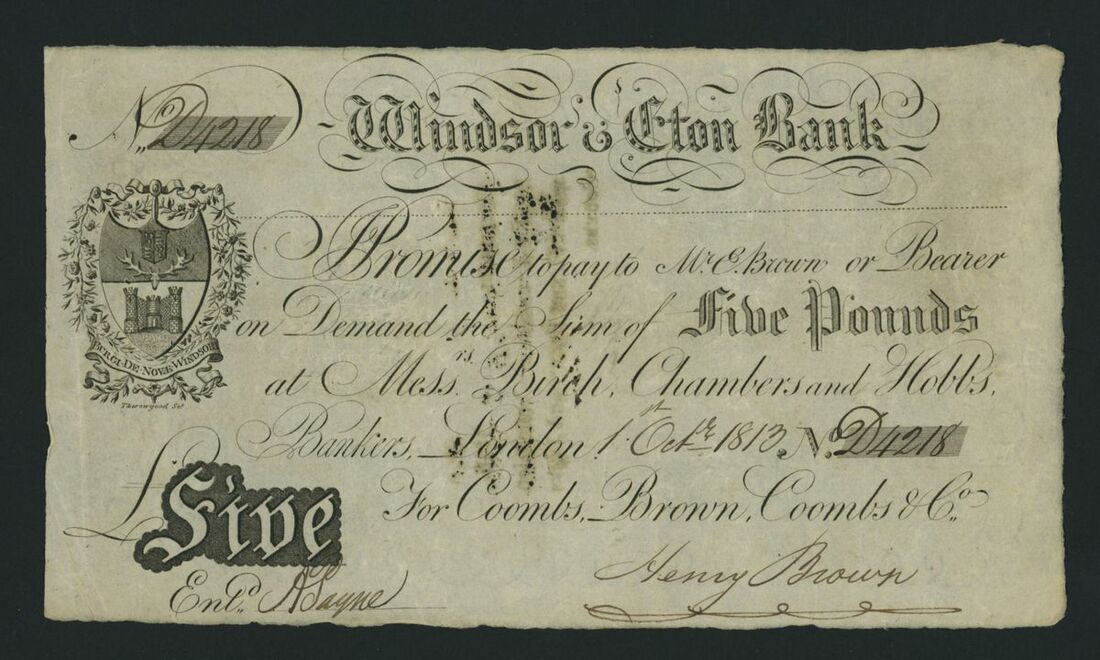 No D4218 Windsor & Eton Bank
I Promise to pay to Mr. E. Brown or Bearer
on Demand the Sum of Five Pounds
at Messrs. Birch, Chambers and Hobbs,
Bankers, London 1st Octr. 1813. No. D4218
BURGI·DE·NOVA·WINDSOR
Thorowgood Sct.
£ Five
For Coombs, Brown, Coombs & Co.
Entd. A Payne
Henry Brown